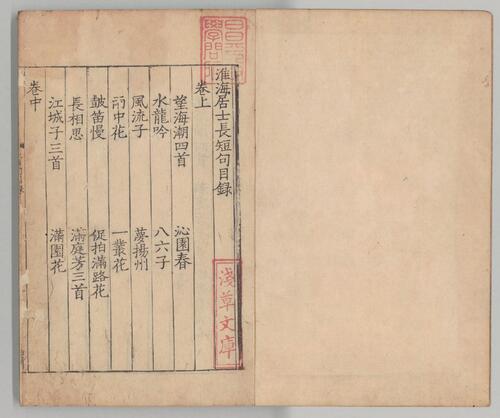 淮海居士長短句目録
卷上
望海潮四首 沁園春
水龍吟 八六子
風流子 夢揚州
雨中花 一叢花
皷笛慢 促拍滿路花
長相思 滿庭芳三首
江城子三首 滿園花
卷中
淺草文庫